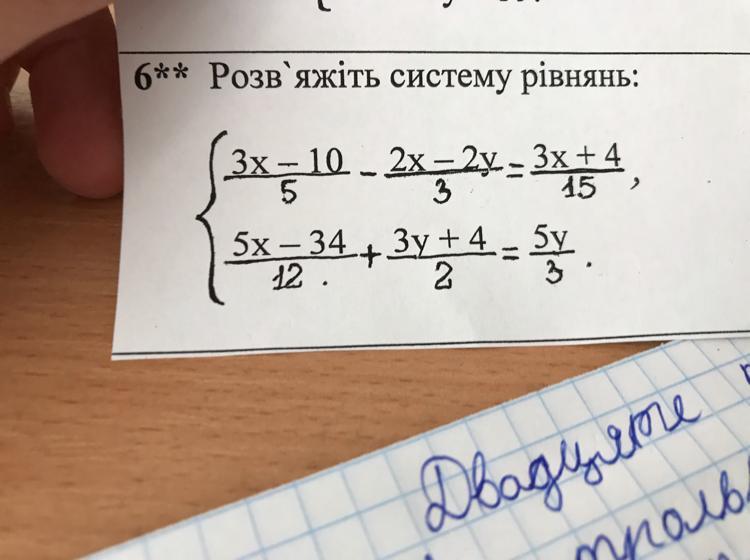 6** Розв`яжіть систему рівнянь:
{ (3x – 10)/5 - (2x – 2y)/3 = (3x + 4)/15 ,
(5x – 34)/12 . + (3y + 4)/2 = 5y/3 .
Двадцяте